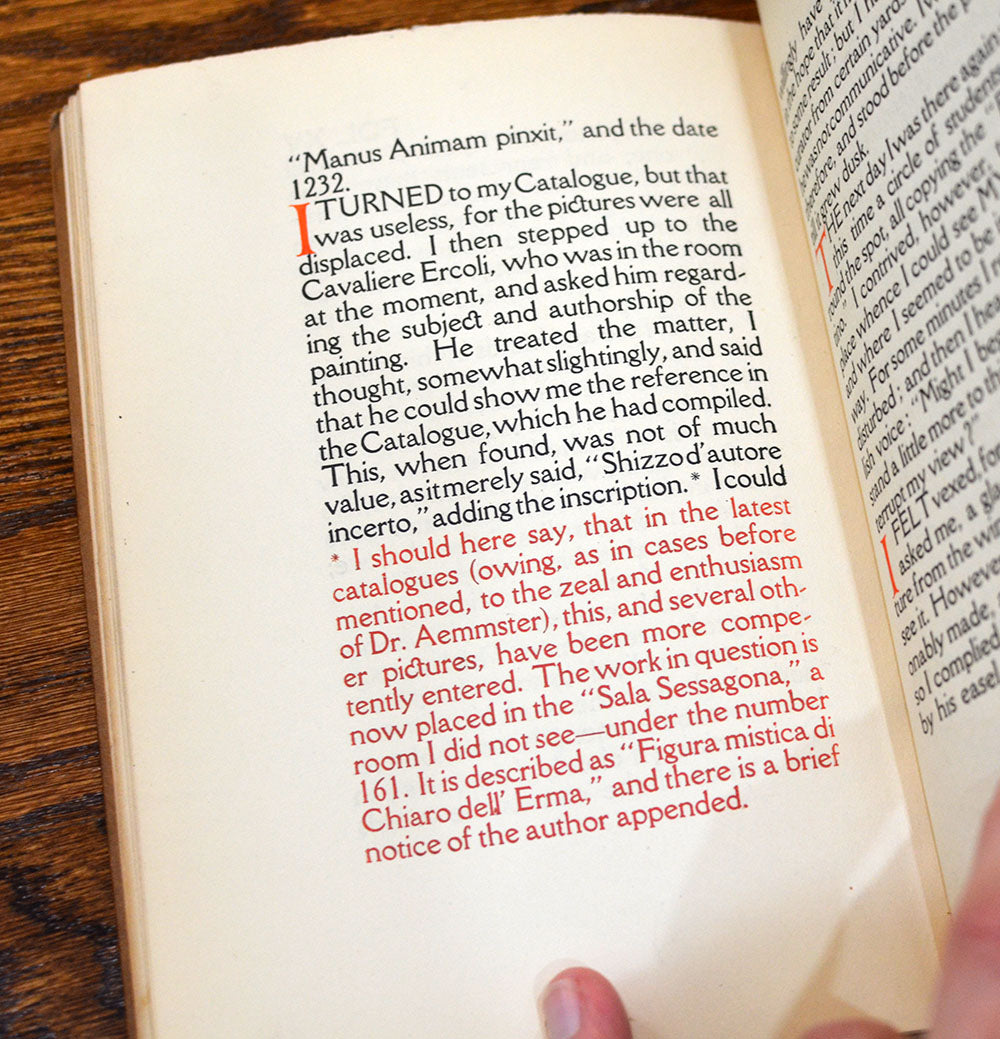 “Manus Animam pinxit,” and the date
1232.
I TURNED to my Catalogue, but that
was useless, for the pictures were all
displaced. I then stepped up to the
Cavaliere Ercoli, who was in the room
at the moment, and asked him regard-
ing the subject and authorship of the
painting. He treated the matter, I
thought, somewhat slightingly, and said
that he could show me the reference in
the Catalogue, which he had compiled.
This, when found, was not of much
value, as it merely said, “Shizzo d’autore
incerto,” adding the inscription.* I could
* I should here say, that in the latest
catalogues (owing, as in cases before
mentioned, to the zeal and enthusiasm
of Dr. Aemmster), this, and several oth-
er pictures, have been more compe-
tently entered. The work in question is
now placed in the “Sala Sessagona,” a
room I did not see—under the number
161. It is described as “Figura mistica di
Chiaro dell’ Erma,” and there is a brief
notice of the author appended.
have
the hope that it
some result; but I
from certain yards
was not communicative. I
therefore, and stood before the
grew dusk.
THE next day I was there again
this time a circle of students
round the spot, all copying the
I contrived, however,
place whence I could see
and where I seemed to be
way. For some minutes I
disturbed; and then I
lish voice: “Might I
stand a little more to
terrupt my view?”
I FELT vexed, for
asked me, a
ture from the
see it. However
onably made,
so I complied
by his easel